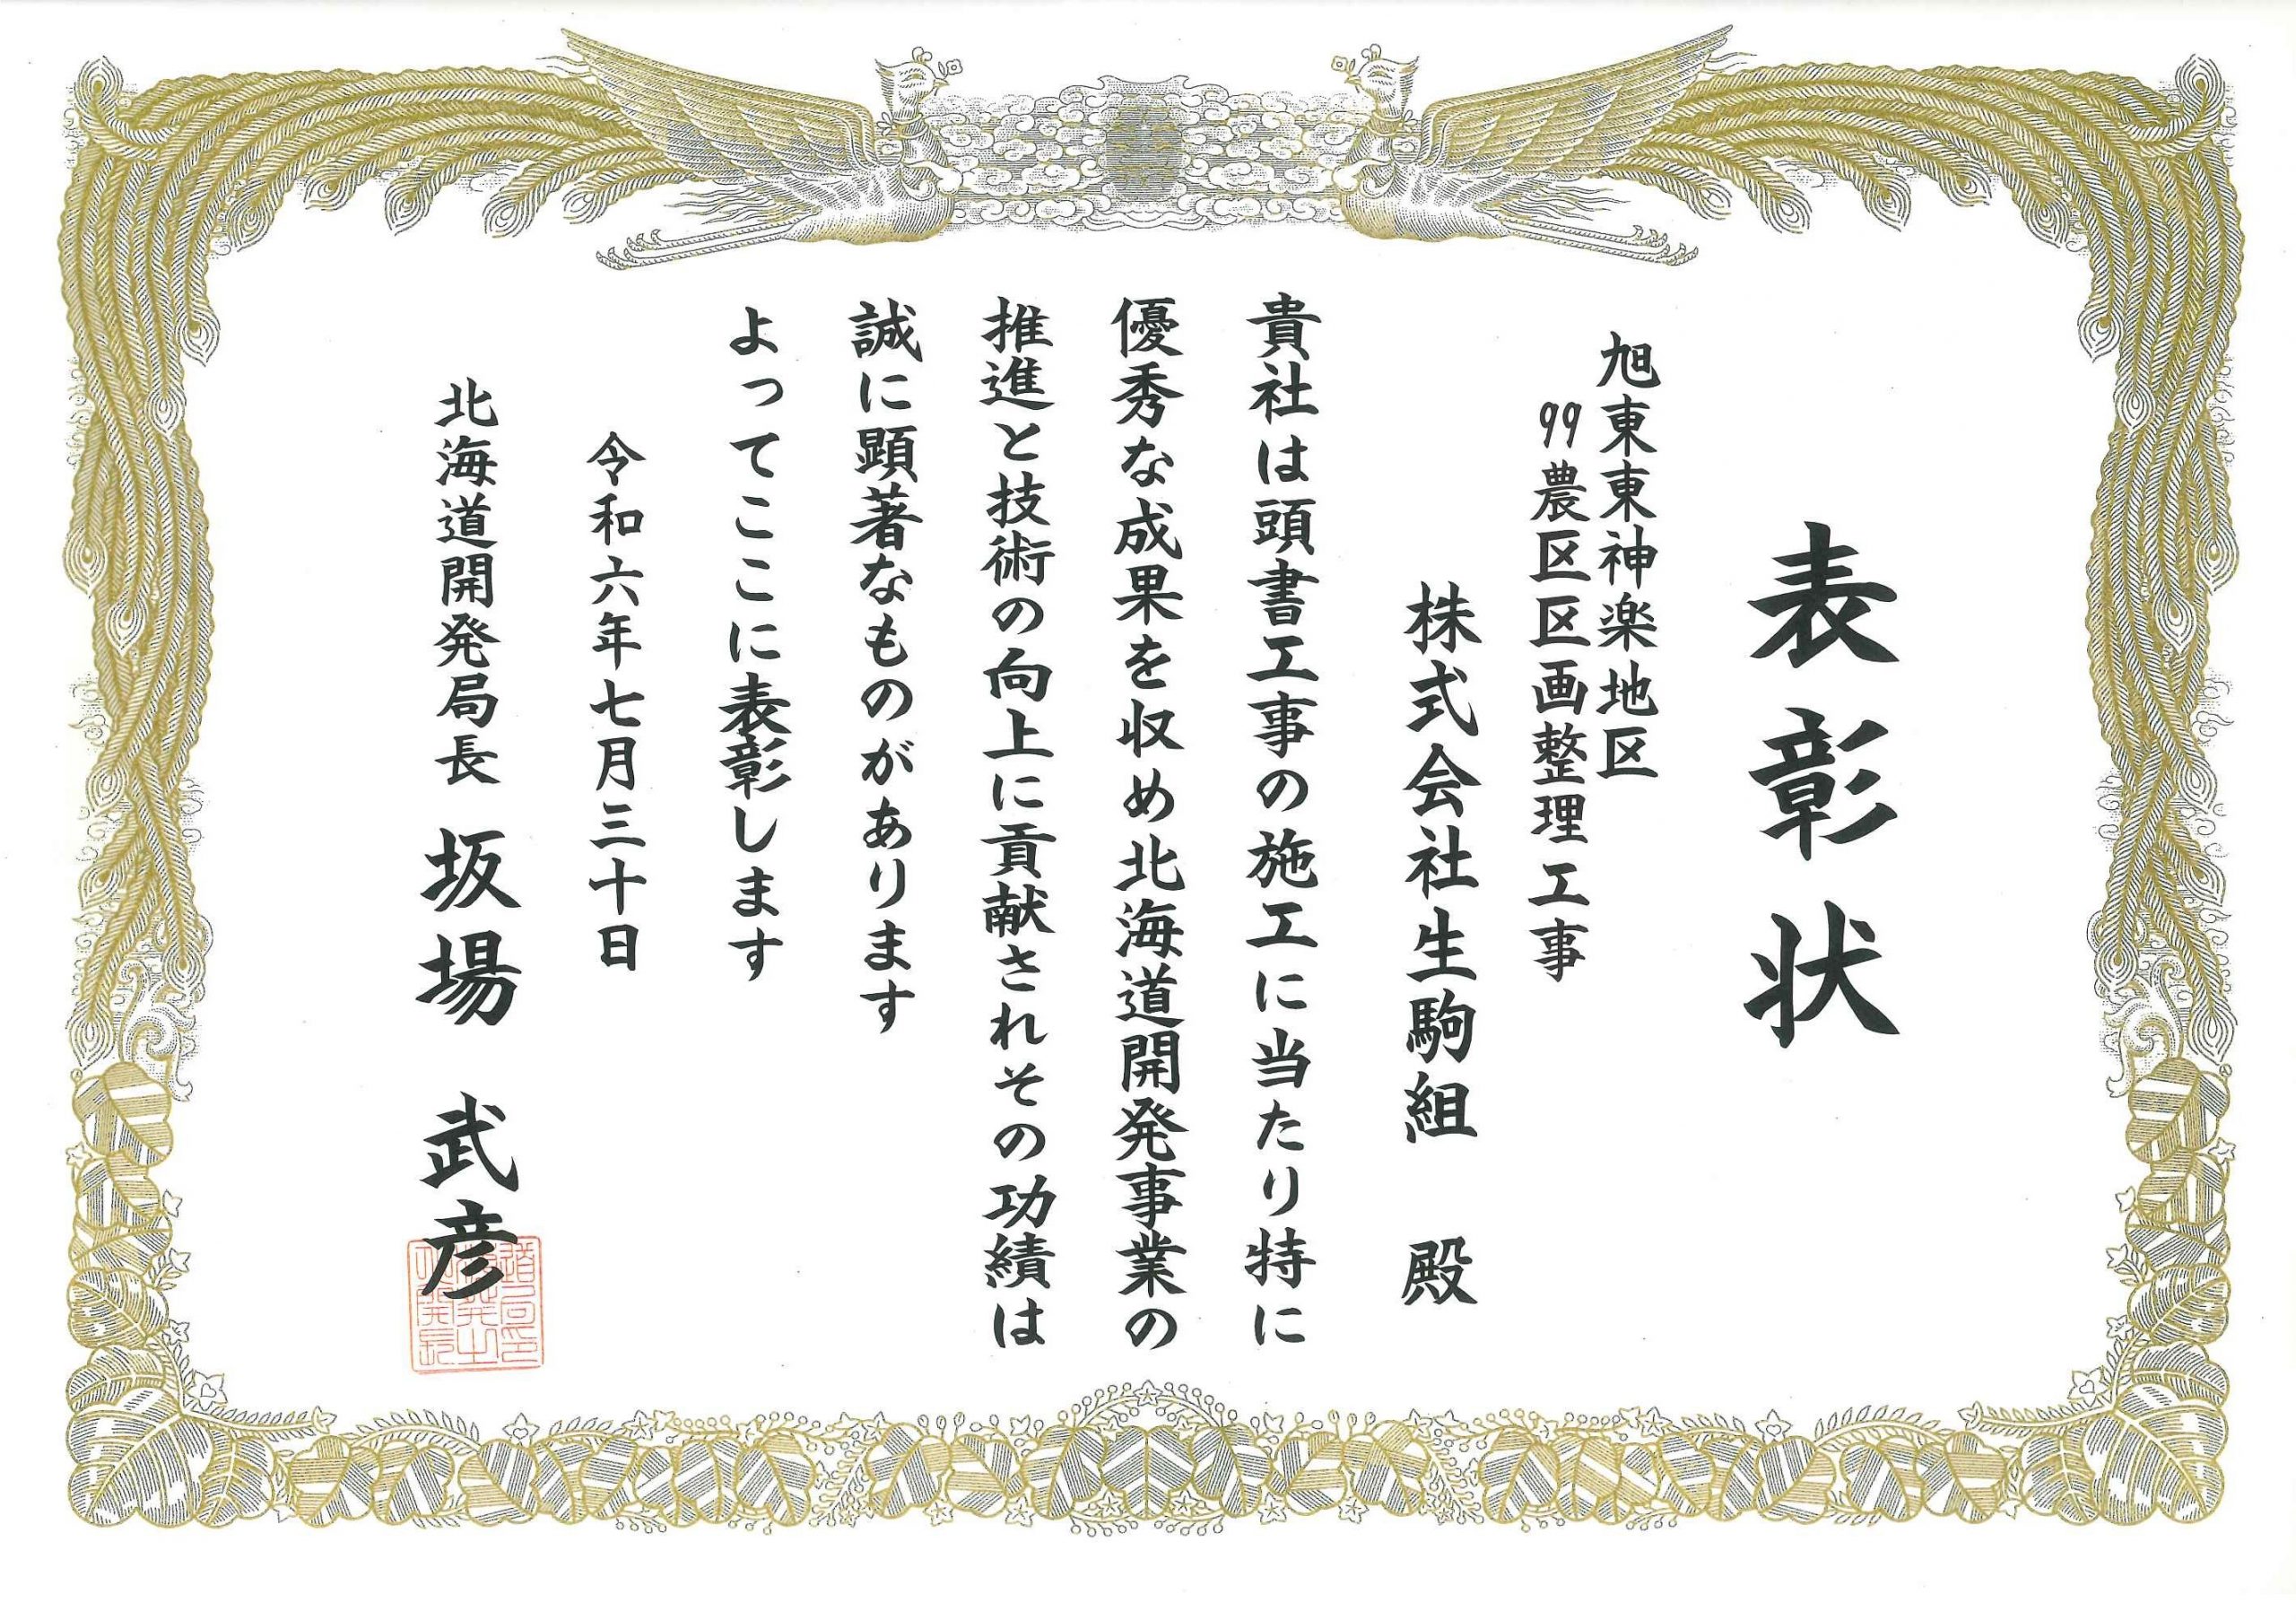 表彰状
旭東東神楽地区
99農区区画整理工事
株式会社生駒組 殿
貴社は頭書工事の施工に当たり特に
優秀な成果を収め北海道開発事業の
推進と技術の向上に貢献されその功績は
誠に顕著なものがあります
よってここに表彰します
令和六年七月三十日
北海道開発局長 坂場 武彦